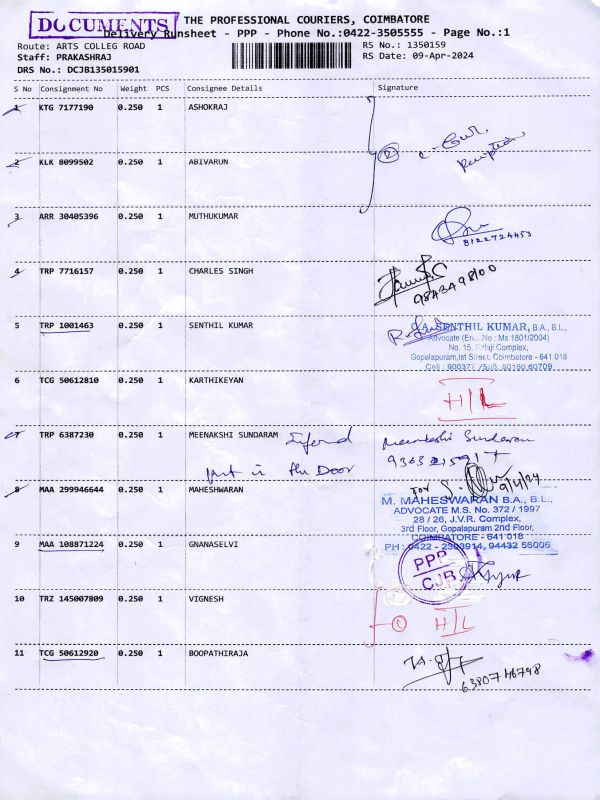 DOCUMENTS
THE PROFESSIONAL COURIERS, COIMBATORE
Delivery Runsheet - PPP - Phone No.:0422-3505555 - Page No.:1
Route: ARTS COLLEG ROAD
RS No.: 1350159
Staff: PRAKASHRAJ
RS Date: 09-Apr-2024
DRS No.: DCJB135015901
S No Consignment No Weight PCS Consignee Details Signature
1 KTG 7177190 0.250 1 ASHOKRAJ
2 KLK 8099502 0.250 1 ABIVARUN
3 ARR 30405396 0.250 1 MUTHUKUMAR
8122724453
4 TRP 7716157 0.250 1 CHARLES SINGH
9843498100
5 TRP 1001463 0.250 1 SENTHIL KUMAR
SENTHIL KUMAR, B.A., B.L.,
Advocate No : Ms 1801/2004)
No. 15, Balaji Complex,
Gopalapuram,Ist Street, Coimbatore - 641 018
6 TCG 50612810 0.250 1 KARTHIKEYAN
H/L
7 TRP 6387230 0.250 1 MEENAKSHI SUNDARAM
Meenakshi Sundaram
put in the Door
8 MAA 299946644 0.250 1 MAHESHWARAN
For 9/4/24
M. MAHESWARAN B.A., B.L.,
ADVOCATE M.S. No. 372 / 1997
28 / 26, J.V.R. Complex,
3rd Floor, Gopalapuram 2nd Floor,
COIMBATORE - 641 018
94432 56006
9 MAA 108871224 0.250 1 GNANASELVI
PPP
CJB
10 TRZ 145007809 0.250 1 VIGNESH
H/L
11 TCG 50612920 0.250 1 BOOPATHIRAJA
6380746748